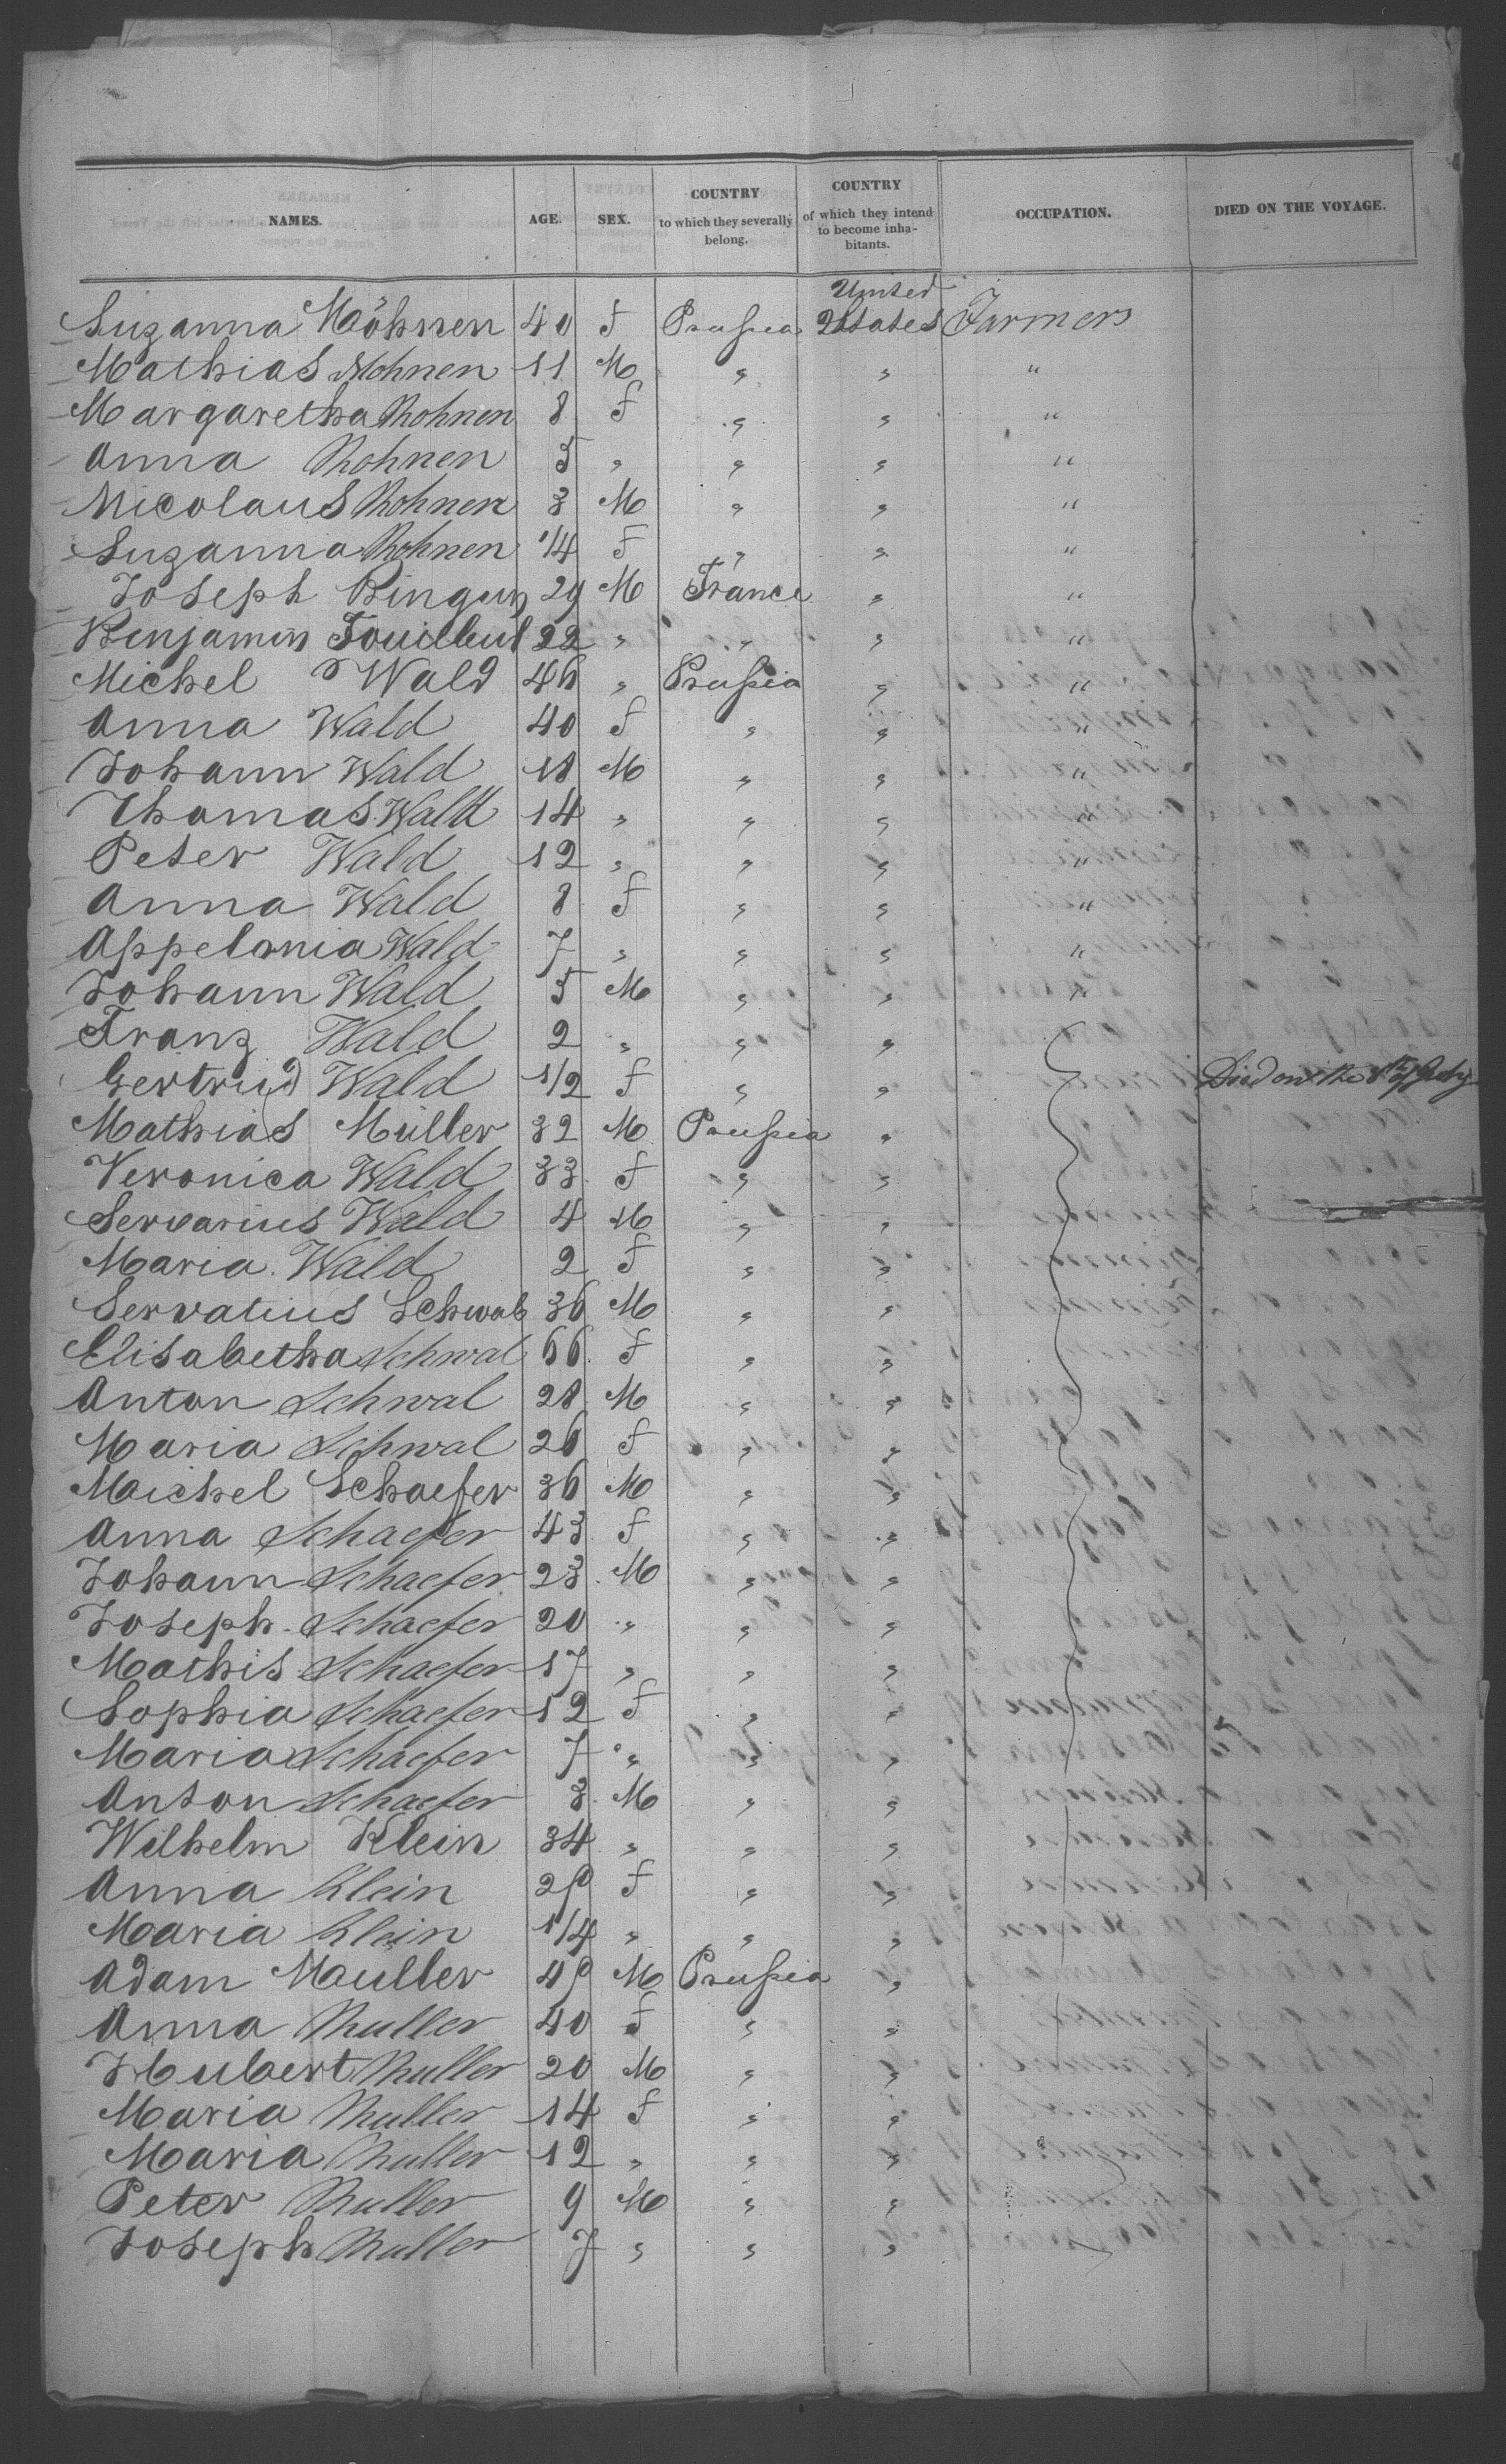 NAMES. AGE. SEX. COUNTRY to which they severally belong. COUNTRY of which they intend to become inhabitants. OCCUPATION. DIED ON THE VOYAGE.
Suzanna Möhnen 40 F Prussia United States Farmers
Mathias Mohnen 11 M " " "
Margaretha Mohnen 8 F " " "
Anna Mohnen 5 " " " "
Nicolaus Mohnen 3 M " " "
Suzanna Mohnen 1/4 F " " "
Joseph 29 M France " "
Benjamin 22 " " " "
Michel Wald 46 " Prussia " "
Anna Wald 40 F " " "
Johann Wald 18 M " " "
Thomas Wald 14 " " " "
Peter Wald 12 " " " "
Anna Wald 8 F " " "
Appelonia Wald 7 " " " "
Johann Wald 5 M " " "
Franz Wald 2 " " "
Gertrud Wald 1/2 F " " Died on the 8th of July
Mathias Müller 32 M Prussia "
Veronica Wald 33 F " "
Servarius Wald 4 M " "
Maria Wald 2 F " "
Servatius Schwab 36 M " "
Elisabetha Schwal 66 F " "
Anton Schwal 28 M " "
Maria Schwal 26 F " "
Michel Schaefer 36 M " "
Anna Schaefer 43 F " "
Johann Schaefer 23 M " "
Joseph Schaefer 20 " " "
Mathis Schaefer 17 " " "
Sophia Schaefer 12 F " "
Maria Schaefer 7 " " "
Anton Schaefer 3 M " "
Wilhelm Klein 34 " " "
Anna Klein 29 F " "
Maria Klein 1/4 " " "
Adam Muller 49 M Prussia "
Anna Muller 40 F " "
Hubert Muller 20 M " "
Maria Muller 14 F " "
Maria Muller 12 " " "
Peter Muller 9 M " "
Joseph Muller 7 " " "